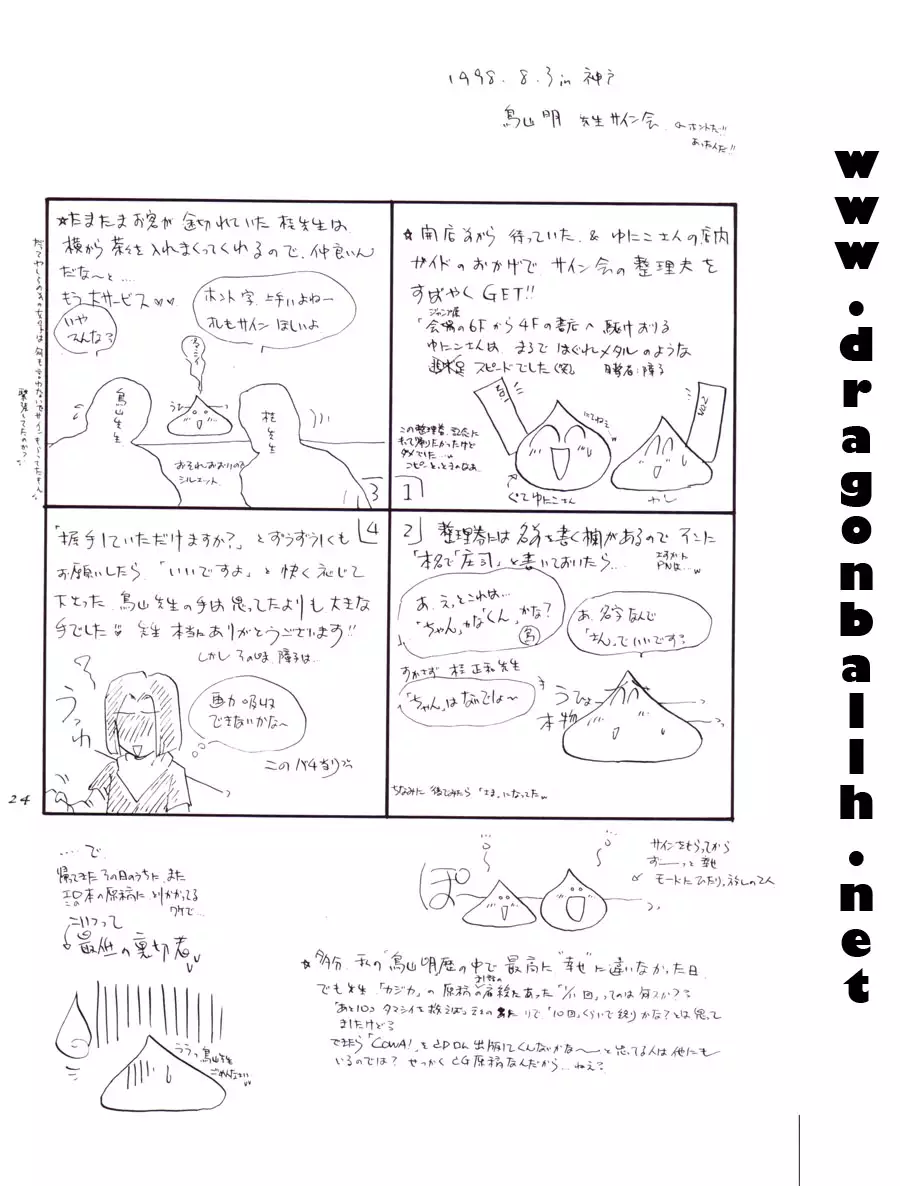 1998. 8. 3 in 神戸
鳥山明 先生サイン会
ホントだ!!
あったんだ!!
☆開店前から 待っていた & ゆにこさんの店内
ガイドのおかげで サイン会の整理券を
すばやく GET!!
ジャンプ展
「会場の6Fから 4Fの書店へ 駆け おりる
ゆにこさんは、まるで はぐれメタルのような
スピードでした(笑)
この整理券、記念に
もって帰りたかったけど
ダメでした…
ぐて ゆにこさん
やし
1
2
整理券には 名前を書く欄があるので そこに
「本名で「庄司」と書いておいたら…
PNは…
あ、えっとこれは…
「ちゃん」かな「くん」かな?
鳥
あ、名字なんで
「さん」でいいです?
すかさず 桂 正和先生
「ちゃん」はないでしょ〜
うひょ
本物
ちなみに 後でみたら「さま」になってた
☆たまたまお客が 途切れていた 桂先生は、
横から 茶々を 入れまくってくれるので、仲良いん
だな〜と…
もう 大サービス♡♡
いや
そんな?
ホント 字、上手いよねー
オレもサイン ほしいよ
タマシイ
鳥山先生
桂先生
おそれおおいので
シルエット
3
4
「握手していただけますか?」とずうずうしくも
お願いしたら、「いいですよ」と 快く 応じて
下さった 鳥山先生の手は 思ってたよりも 大きな
手でした 先生 本当に ありがとうございます!!
しかし そのとき、障子は…
うっわ
画力 吸収
できないかな〜
このバチ当り
24
……で、
帰ってきた その日のうちに、また
エロ本の原稿に、とりかかってる
ワケで…
こいつって
最低の裏切者
ううっ 鳥山先生
ごめんなさい
ぽ
サインをもらってから
ずーーっと 幸せ
モードにひたりっぱなしの2人
☆多分、私の"鳥山明歴"の中で 最高に"幸せ"に違いなかった日
でも先生「カジカ」の 原稿の 最後にあった "1/11回" ってのは 何スか??
「10回」くらいで終りかな?とは思って
ましたけど?
できたら「COWA!」を CD ROM 出版してくんないかな〜〜と 思ってる人は 他にも
いるのでは? せっかく CG 原稿なんだから…ねえ?
www.dragonballh.net